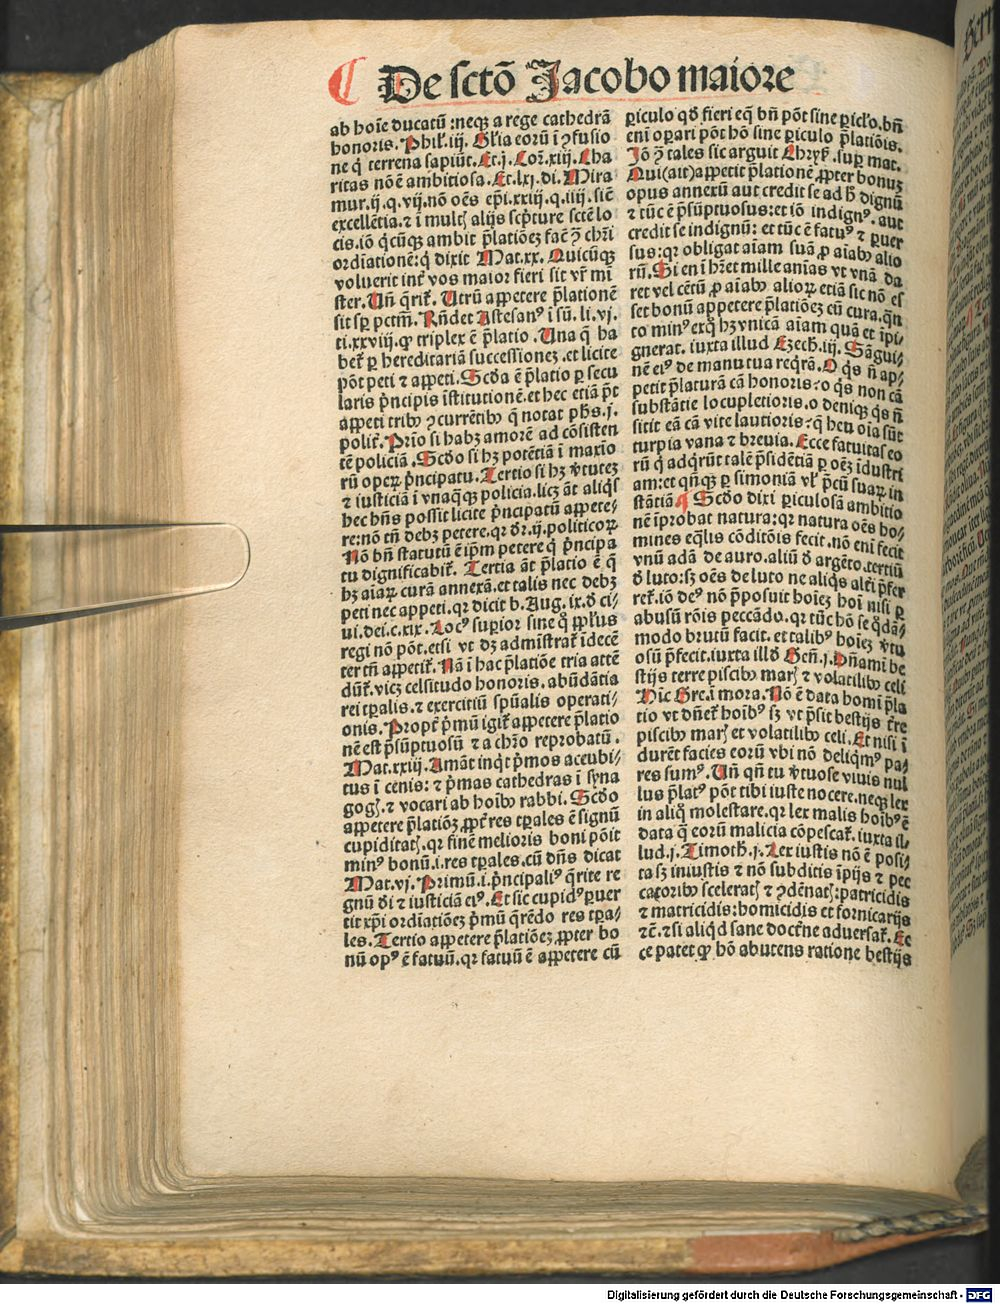 De sctō Jacobo maiore
ab hoīe ducatū : neqƺ a rege cathedrā
honoris. Phil̕. iij. Gl̕ia eorū ī ꝯfusio
ne q̇ terrena sapiūt. Et. j. Coꝛ. xiij. Cha
ritas nō ē ambitiosa. Et. lxj. di. Mira
mur. ij. q. vij. nō oēs ep̄i. xxiij. q. iiij. sic̄
excellētia. ⁊ ī mult᷒ alijs scp̄ture sctē lo
cis. iō q̇cūqƺ ambit p̄latiōeƺ fac̄ ꝯ̄ chr̄i
ordīationē : q̇ dixit Mat. xx. Quicūqƺ
voluerit int̄ vos maior fieri sit vr̄ mi
ster. Un̄ q̄rit᷒. Utrū appetere p̄lationē
sit sꝑ pctm̄. Rn̄det Astesanꝰ ī sū. li. vj.
ti. xxviij. ꝙ triplex ē p̄latio. Una q̄ ha
bet᷒ ꝑ hereditariā successioneƺ. et licite
pōt peti ⁊ appeti. Scd̄a ē p̄latio ꝑ secu
laris pⁱncipis īstitutionē. et hec etiā pōt
appeti tribꝰ ꝯcurrētibꝰ q̄ notat ph̄s. j.
polit᷒. Prīo si habƺ amorē ad cōsisten
tē policiā. Scd̄o si hƺ potētiā ī maxīo
rū oꝑeꝝ pⁱncipatu. Tertio si hƺ v̄tuteƺ
⁊ iusticiā ī vnaq̄qƺ policia. licƺ āt aliq̇s
hec bn̄s possit licite pⁱncipatū appete⸗
re : nō tn̄ debƺ petere. qꝛ dꝛ̄. ij. politicoꝝ
Nō bn̄ statutū ē ip̄m petere q̇ pⁱncipa
tu dignificabit᷒. Tertia āt p̄latio ē q̄
hƺ aīaꝝ curā annexā. et talis nec debƺ
peti nec appeti. qꝛ dicit b. Aug. ix. ð ci⸗
ui. dei. c. xix. Locꝰ suꝑior sine q̊ pp̄lus
regi nō pōt. etsi vt dƺ admīstrat᷒ īdecē
ter tn̄ appetit᷒. Nā ī hac p̄latiōe tria attē
dūt᷒. vicƺ celsitudo honoris. abūdātia
rei tꝑalis. ⁊ exercitiū spūalis operati⸗
onis. Propt̄ pⁱmū igit᷒ appetere p̄latio
nē est p̄sūptuosū ⁊ a chr̄o reprobatū.
Mat. xxiij. Amāt inq̇t pⁱmos accubi⸗
tus ī cenis : ⁊ pⁱmas cathedras ī syna
gog᷒. ⁊ vocari ab hoībꝰ rabbi. Scd̄o
appetere p̄latiōeƺ ꝓpt̄ res tꝑales ē signū
cupiditat᷒. qꝛ finē melioris boni pōit
minꝰ bonū. i. res tꝑales. cū dn̄s dicat
Mat. vj. Primū. i. pⁱncipaliꝰ q̄rite re
gnū ði ⁊ iusticiā eiꝰ. Et sic cupidꝰ ꝑuer
tit xp̄i ordīatiōeƺ pⁱmū q̄rēdo res tꝑa⸗
les. Tertio appetere p̄latiōeƺ ꝓpter bo
nū opꝰ ē fatuū. qꝛ fatuū ē appetere cū
ꝑiculo qð fieri eq̄ bn̄ pōt sine ꝑicl̕o. bn̄
eni oꝑari pōt hō sine ꝑiculo p̄latiōis.
Jō ꝯ̄ tales sic arguit Chryẜ. suꝑ mat.
Qui (ait) appetit p̄lationē ꝓpter bonuƺ
opus annexū aut credit se ad h̄ dignū
⁊ tūc ē p̄sūptuosus : et iō indignꝰ. aut
credit se indignū : et tūc ē fatuꝰ ⁊ ꝑuer
sus : qꝛ obligat aīam suā ꝓ aīabꝰ alio
rū. Si en ī hr̄et mille anīas vt vnā da
ret vel cētū ꝓ aīabꝰ alioꝝ etiā sic nō eſ
set bonū appetere p̄latiōeƺ cū cura. q̄n
to minꝰ exq̊ hƺ vnicā aīam quā et īpi⸗
gnerat. iuxta illud Ezech. iij. Sāgui⸗
nē eiꝰ de manu tua reqⁱrā. O q̇s n̄ ap⸗
petit p̄laturā cā honoris? o q̇s non cā
substātie locupletioris. o denique q̇s n̄
sitit eā cā vite lautioris? q̄ heu oīa sūt
turpia vana ⁊ breuia. Ecce fatuitas eo
rū q̇ adq̇rūt talē p̄sidētiā ꝑ oēƺ īdustri
am : et qn̄qƺ ꝑ simoniā vl̕ p̄cū suaꝝ in
stātiā ¶ Scd̄o dixi ꝑiculosā ambitio
nē īprobat natura : qꝛ natura oēs ho⸗
mines eq̄lis cōditōis fecit. nō eni fecit
vnū adā de auro. aliū ð argēto. tertiū
ð luto : sƺ oēs de luto ne aliq̇s alt̄i p̄fer
ret᷒. iō deꝰ nō p̄posuit hoīeƺ hoī nisi ꝑ
abusū rōis peccādo. qꝛ tūc hō se q̊dā⸗
modo brutū facit. et talibꝰ hoīeƺ v̄tu
osū p̄fecit. iuxta ill̕ð Gen̄. j. Dn̄amī be
stijs terre piscibꝰ mar᷒ ⁊ volatilibꝰ celi
Hic Gre. ī mora. Nō ē data homī p̄la
tio vt dn̄et᷒ hoībꝰ sƺ vt p̄sit bestijs t̄re
piscibꝰ mar᷒ et volatilibꝰ celi. Et nisi ī
durēt facies eorū vbi nō deliqⁱmꝰ pa⸗
res sumꝰ. Un̄ qn̄ tu v̄tuose viuis nul
lus p̄latꝰ pōt tibi iuste nocere. neqƺ lex
in aliq̊ molestare. qꝛ lex malis hoībꝰ ē
data q̄ eorū malicia cōpescat᷒. iuxta il⸗
lud. j. Timoth. j. Lex iustis nō ē posi⸗
ta sƺ iniustis ⁊ nō subditis īpijs ⁊ pec
catoribꝰ scelerat᷒ ⁊ ꝯdēnat᷒ : patricidis
⁊ matricidis : homicidis et fornicarijs
⁊c̄. ⁊ si aliqⁱd sane doctⁱne aduersat᷒. Ec
ce patet ꝙ hō abutens ratione bestijs
Digitalisierung gefördert durch die Deutsche Forschungsgemeinschaft - DFG